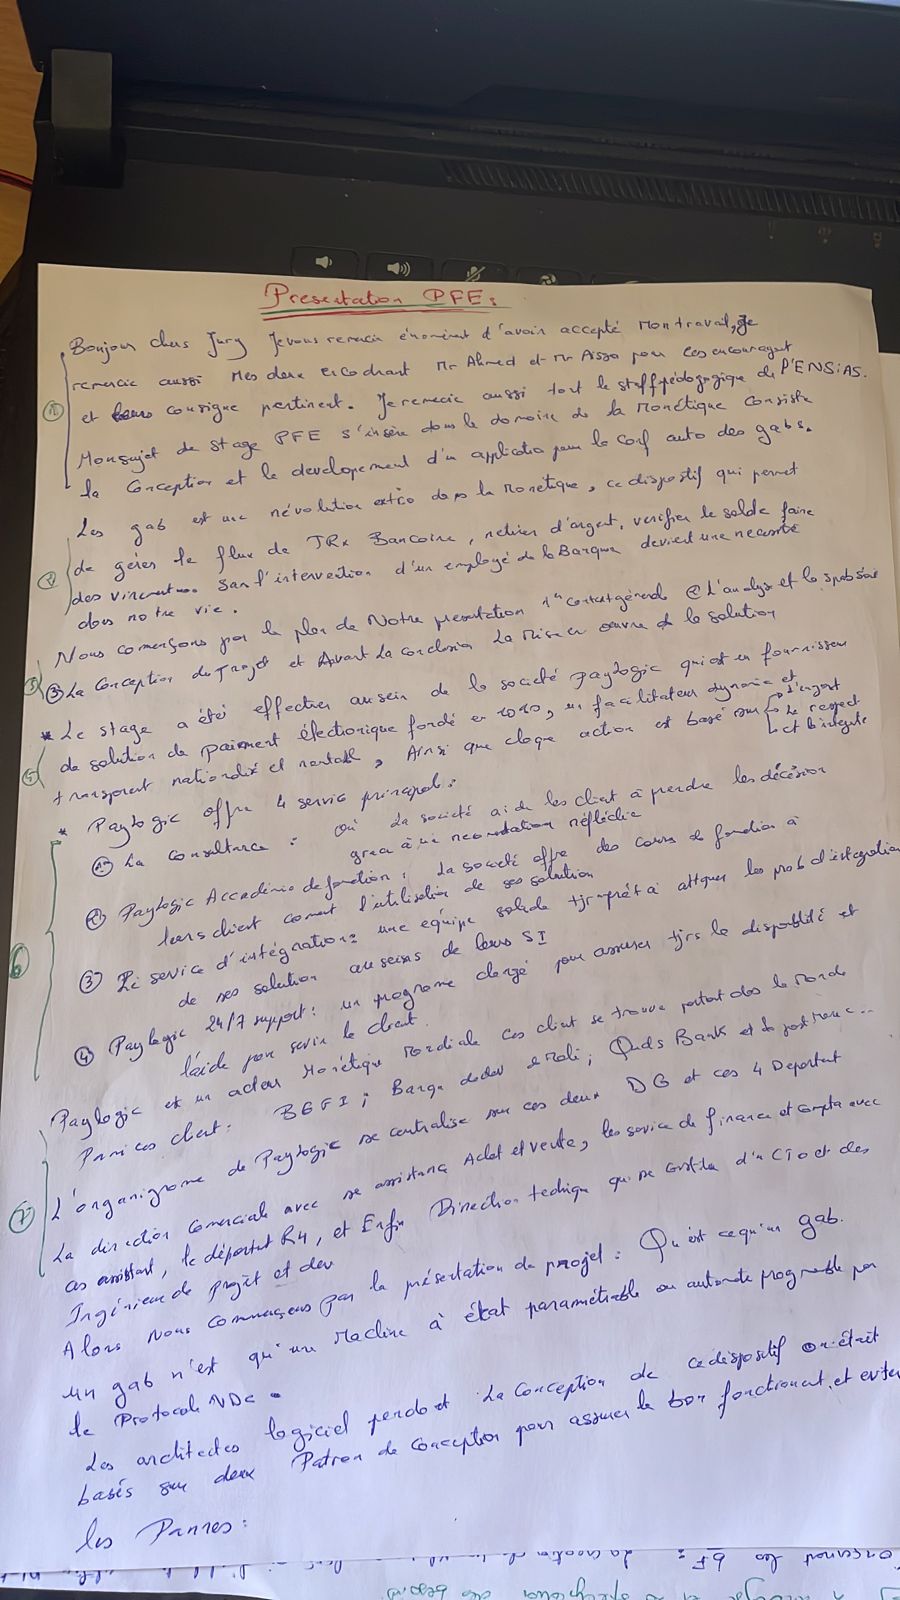 Presentation PFE:
Bonjour chers Jury Je vous remercie énormément d'avoir accepté Mon travail, Je
① remercie aussi Mes deux encadrant Mr Ahmed et Mr Aissa pour ces encouragent
et leurs consigne pertinent. Je remercie aussi tout le staff pédagogique de l'ENSIAS.
Mon sujet de stage PFE s'insère dans le domaine de la Monétique consiste
la Conception et le developement d'un application pour la conf auto des gabs.
Les gab est une révolution extrio dans la Monétique, ce dispositif qui permet
② de gérer le flux de TRx Bancaire, retirer d'argent, verifier le solde faire
des virement... San l'intervention d'un employé de la Banque devient une necessité
dans notre vie.
③ Nous començons par le plan de Notre presentation 1er contextgénérale ② L'analyse et la
③ La Conception du Projet et Avant La conclusion La Mise en œuvre de la solution
* Le stage a été effectuer au sein de la société PayLogic qui est un fournisseur
⑤ de solution de paiement électronique fondé en 2020, un facilitateur dynamic et
transparent nationalité et rentabl, Ainsi que chaque action est basé sur l'argent
Le respect
et l'integrité
* PayLogic offre 4 servic principals:
⑥ ① La consultance: où La société aide les client a prendre les décésion
grace à une recomdation réfléchie
② PayLogic Accadémie de formation: La société offre des cours de formation à
leurs client coment l'utilisation de ses solution
③ Le service d'intégration: une équipe solide tjr prêt à attquer les prob d'intégration
de ses solution au seins de leurs SI
④ PayLogic 24/7 support: un programe chargé pour assurer tjrs la disponiblité et
l'aide pour servir le client.
PayLogic est un acteur Monétique Mordiale ces client se trouve partout dans le Monde
Parmi ces client: BGFI; Banque de dev de Mali; Quds Bank et la post Maroc...
⑦ L'organigrame de PayLogic se centralise sur ces deux DG et ces 4 Departent
La direction comerciale avec se assistanc Achat et vente, les service de finance et compta avec
ces assistant, le départet RH, et Enfin Direction technique qui se constitu d'un CTO et des
Ingénieur de projet et dev
Alors nous commençons par la présentation de projet: Qu'est ce qu'un gab.
un gab n'est qu'une Machine à état paramétrable ou automate programable par
le Protocole NDC.
Les architectes logiciel pendant La conception de ce dispositif on était
basés sur deux Patron de Conception pour assurer le bon fonctionnat, et eviter
les Pannes: